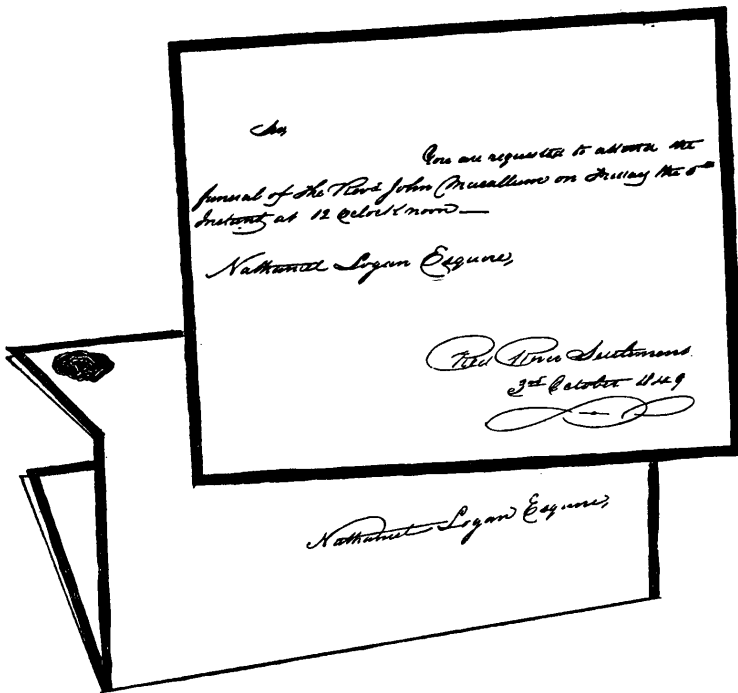 Sir,
You are requested to attend the
funeral of the Revd. John Macallum on Friday the 5th
Instant at 12 O'clock noon—
Nathaniel Logan Esquire,
Red River Settlement
3rd October 1849
Nathaniel Logan Esquire,